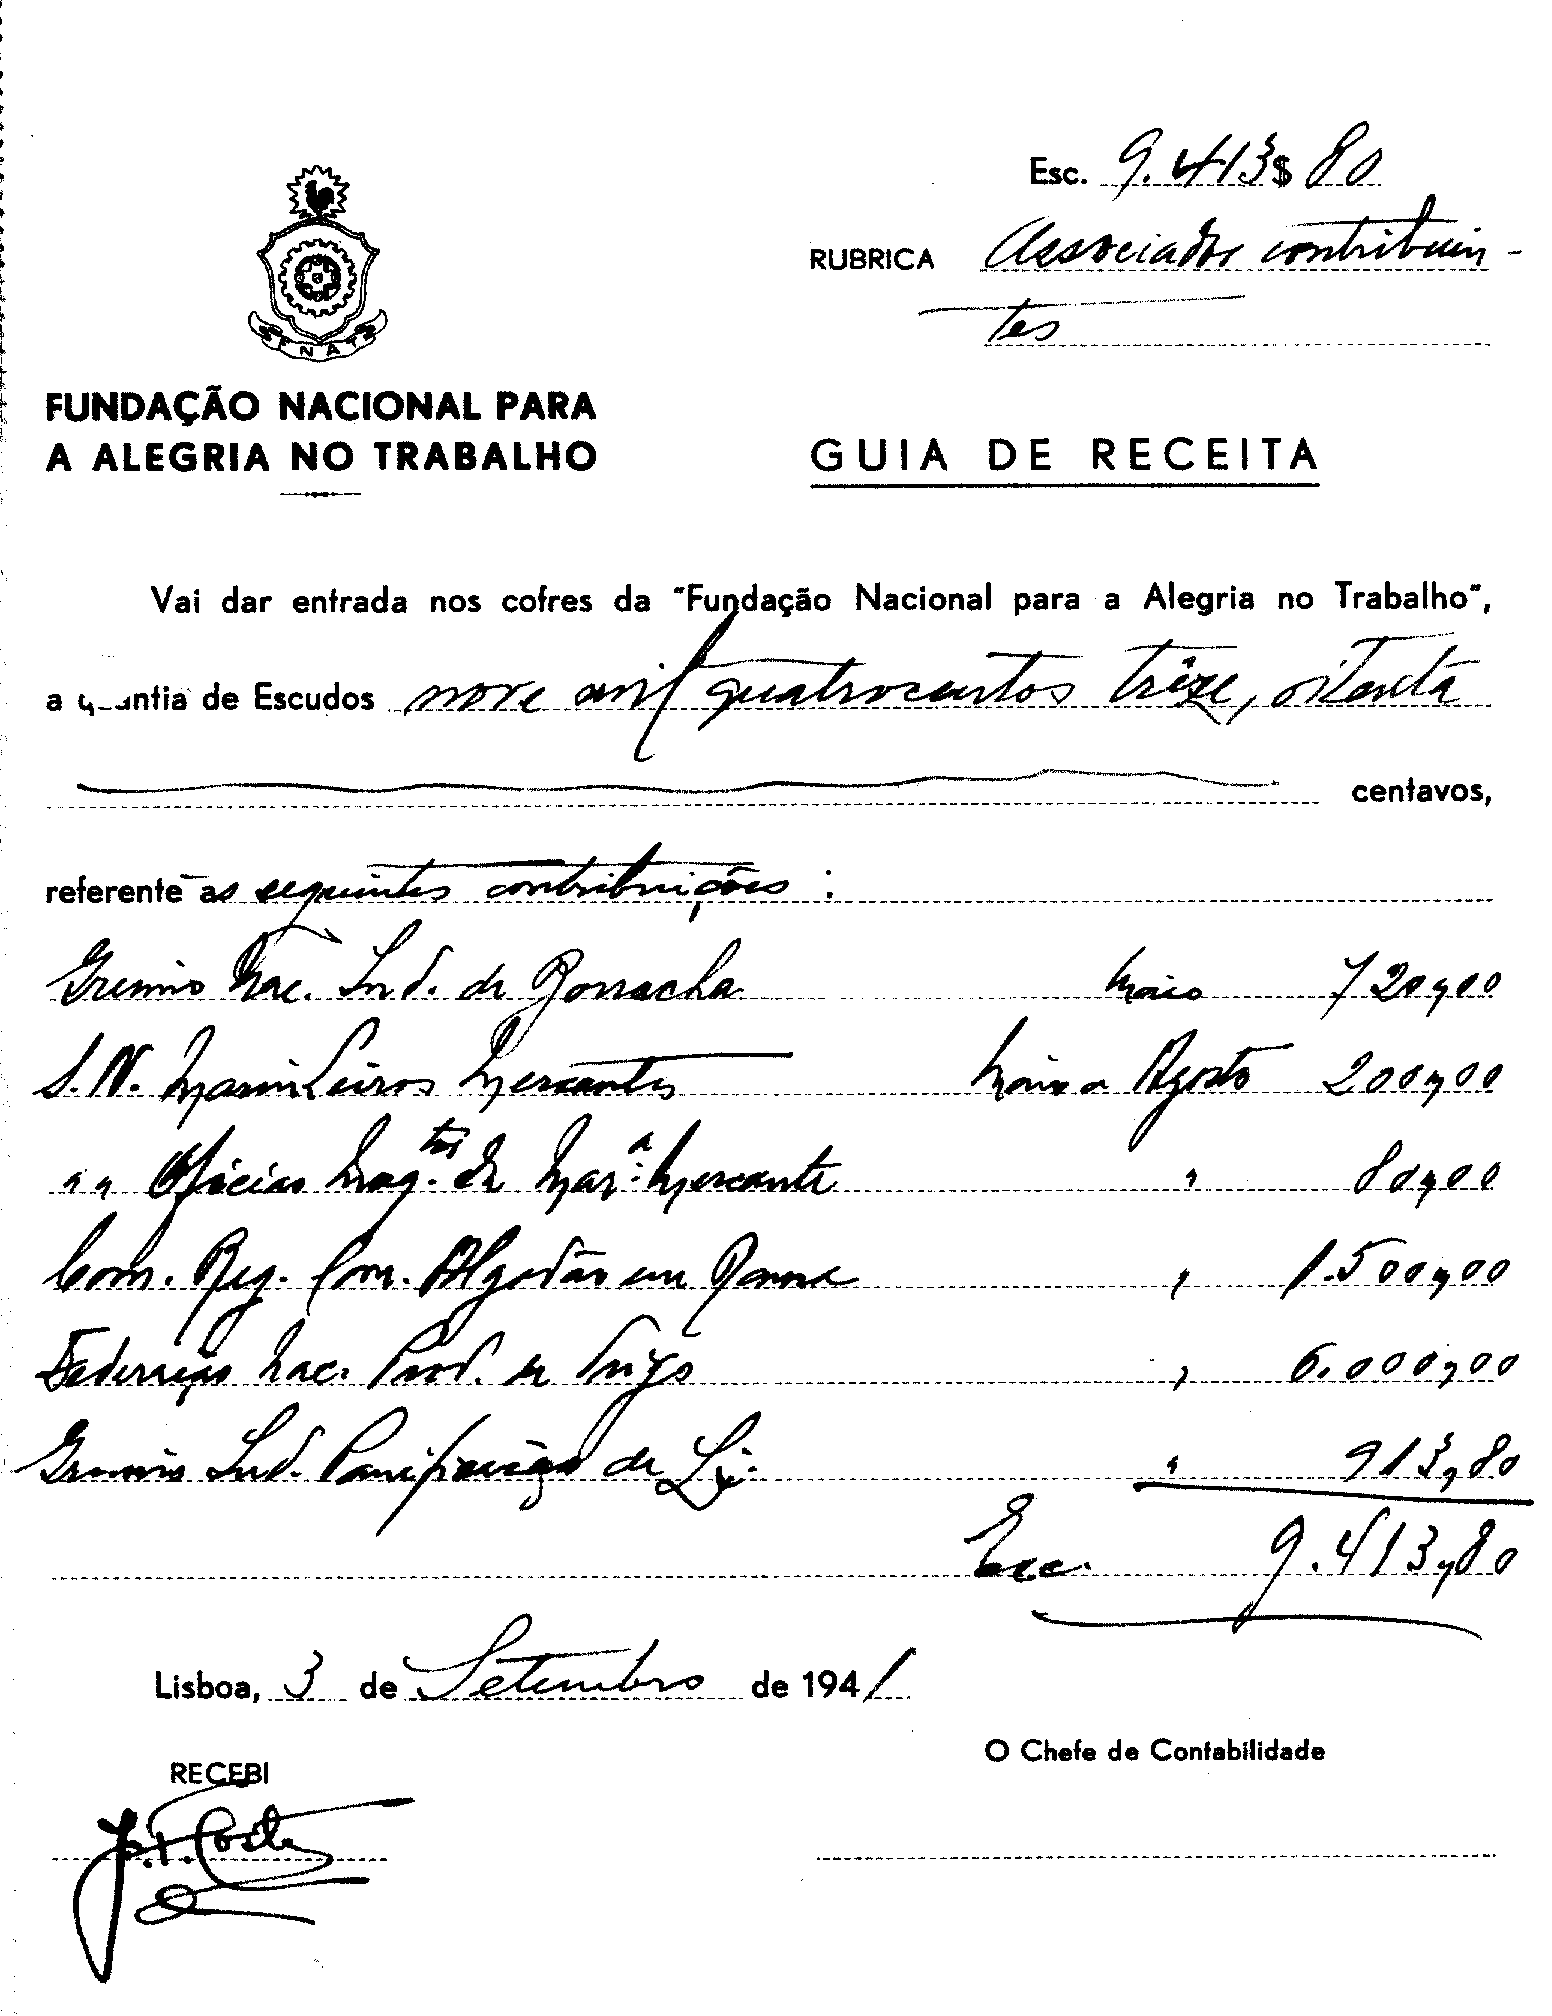 Esc. 9.413$80
RUBRICA Associados contribuin-
tes
FENAT
FUNDAÇÃO NACIONAL PARA
A ALEGRIA NO TRABALHO
GUIA DE RECEITA
Vai dar entrada nos cofres da "Fundação Nacional para a Alegria no Trabalho",
a quantia de Escudos nove mil quatrocentos trêze, oitenta
centavos,
referente as seguintes contribuições:
Gremio Nac. Ind. de Borracha Maio 720,00
S.N. Marinheiros Mercantes Maio a Agosto 200,00
" " Oficiais Maq.tas da Mar.a Mercante " 80,00
Com. Reg. Com. Algodão em Rama " 1.500,00
Federação Nac. Prod. de Trigo " 6.000,00
Gremio Ind. Panificação de Lx. " 913,80
Esc. 9.413,80
Lisboa, 3 de Setembro de 1941
O Chefe de Contabilidade
RECEBI
J.T. Costa